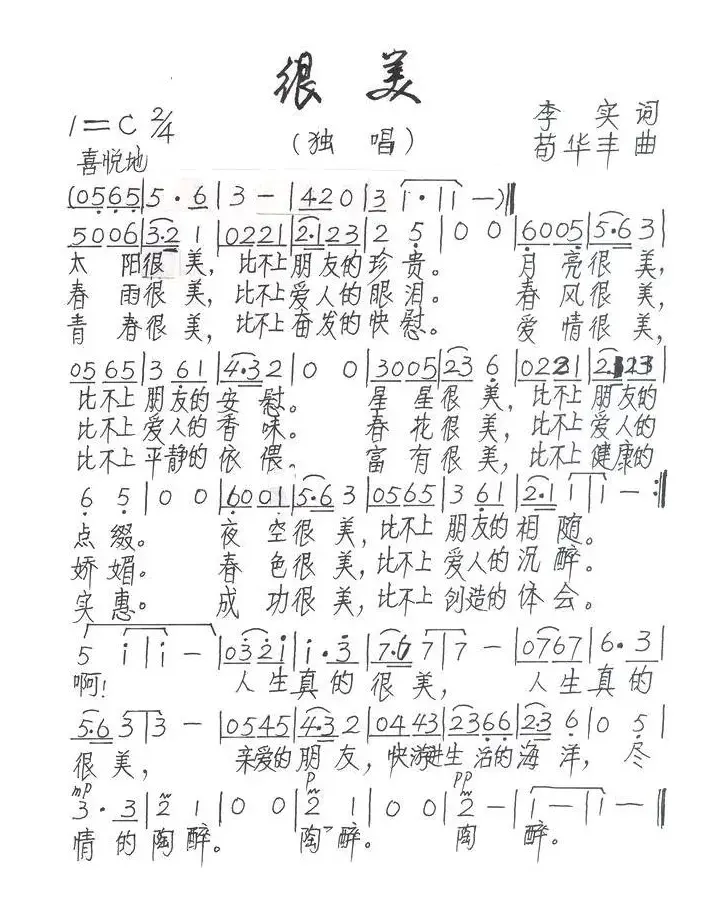 很 美
1=C 2/4 （独 唱） 李 实 词
喜悦地 荀华丰 曲
(0565|5·6|3 -|420|3 i·|i i -)‖
5006|3·2 1|0221|2·123|2 5|0 0|6005|5·63|
太 阳很 美，比不上朋友的珍 贵。 月 亮很 美，
春 雨很 美，比不上爱人的眼 泪。 春 风很 美，
青 春很 美，比不上奋发的快 慰。 爱 情很 美，
0565|3 61|4·32|0 0|3005|23 6|0221|2·123|
比不上 朋友的 安 慰。 星 星很 美，比不上 朋友的
比不上 爱人的 香 味。 春 花很 美，比不上 爱人的
比不上 平静的 依 偎。 富 有很 美，比不上 健康的
6 5|0 0|6001|5·63|0565|3 61|2·1 i|i -:‖
点 缀。 夜 空很 美，比不上 朋友的 相 随。
娇 媚。 春 色很 美，比不上 爱人的 沉 醉。
实 惠。 成 功很 美，比不上 创造的 体 会。
5 i|i -|032i|i·3|7·67|7 -|0767|6·3|
啊！ 人生真的 很 美， 人生真的
5·63|3 -|0545|4·32|0443|2366|2·36|0 5|
很 美， 亲爱的 朋 友，快游进生活的海 洋， 尽
mp p pp
3·3|2 1|0 0|2 1|0 0|2 -|i -|i -‖
情的陶醉。 陶醉。 陶 醉。